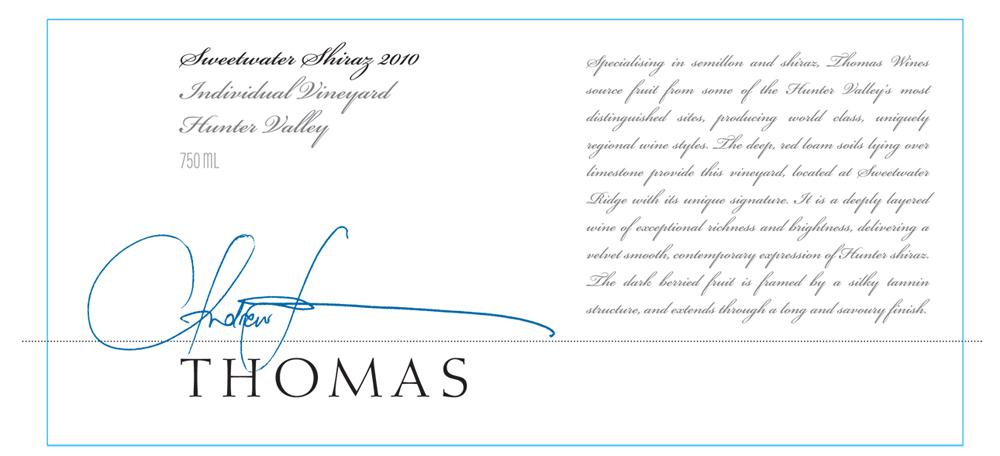 Sweetwater Shiraz 2010
Individual Vineyard
Hunter Valley
750 ML
Andrew
THOMAS
Specialising in semillon and shiraz, Thomas Wines
source fruit from some of the Hunter Valley's most
distinguished sites, producing world class, uniquely
regional wine styles. The deep, red loam soils lying over
limestone provide this vineyard, located at Sweetwater
Ridge with its unique signature. It is a deeply layered
wine of exceptional richness and brightness, delivering a
velvet smooth, contemporary expression of Hunter shiraz.
The dark berried fruit is framed by a silky tannin
structure, and extends through a long and savoury finish.